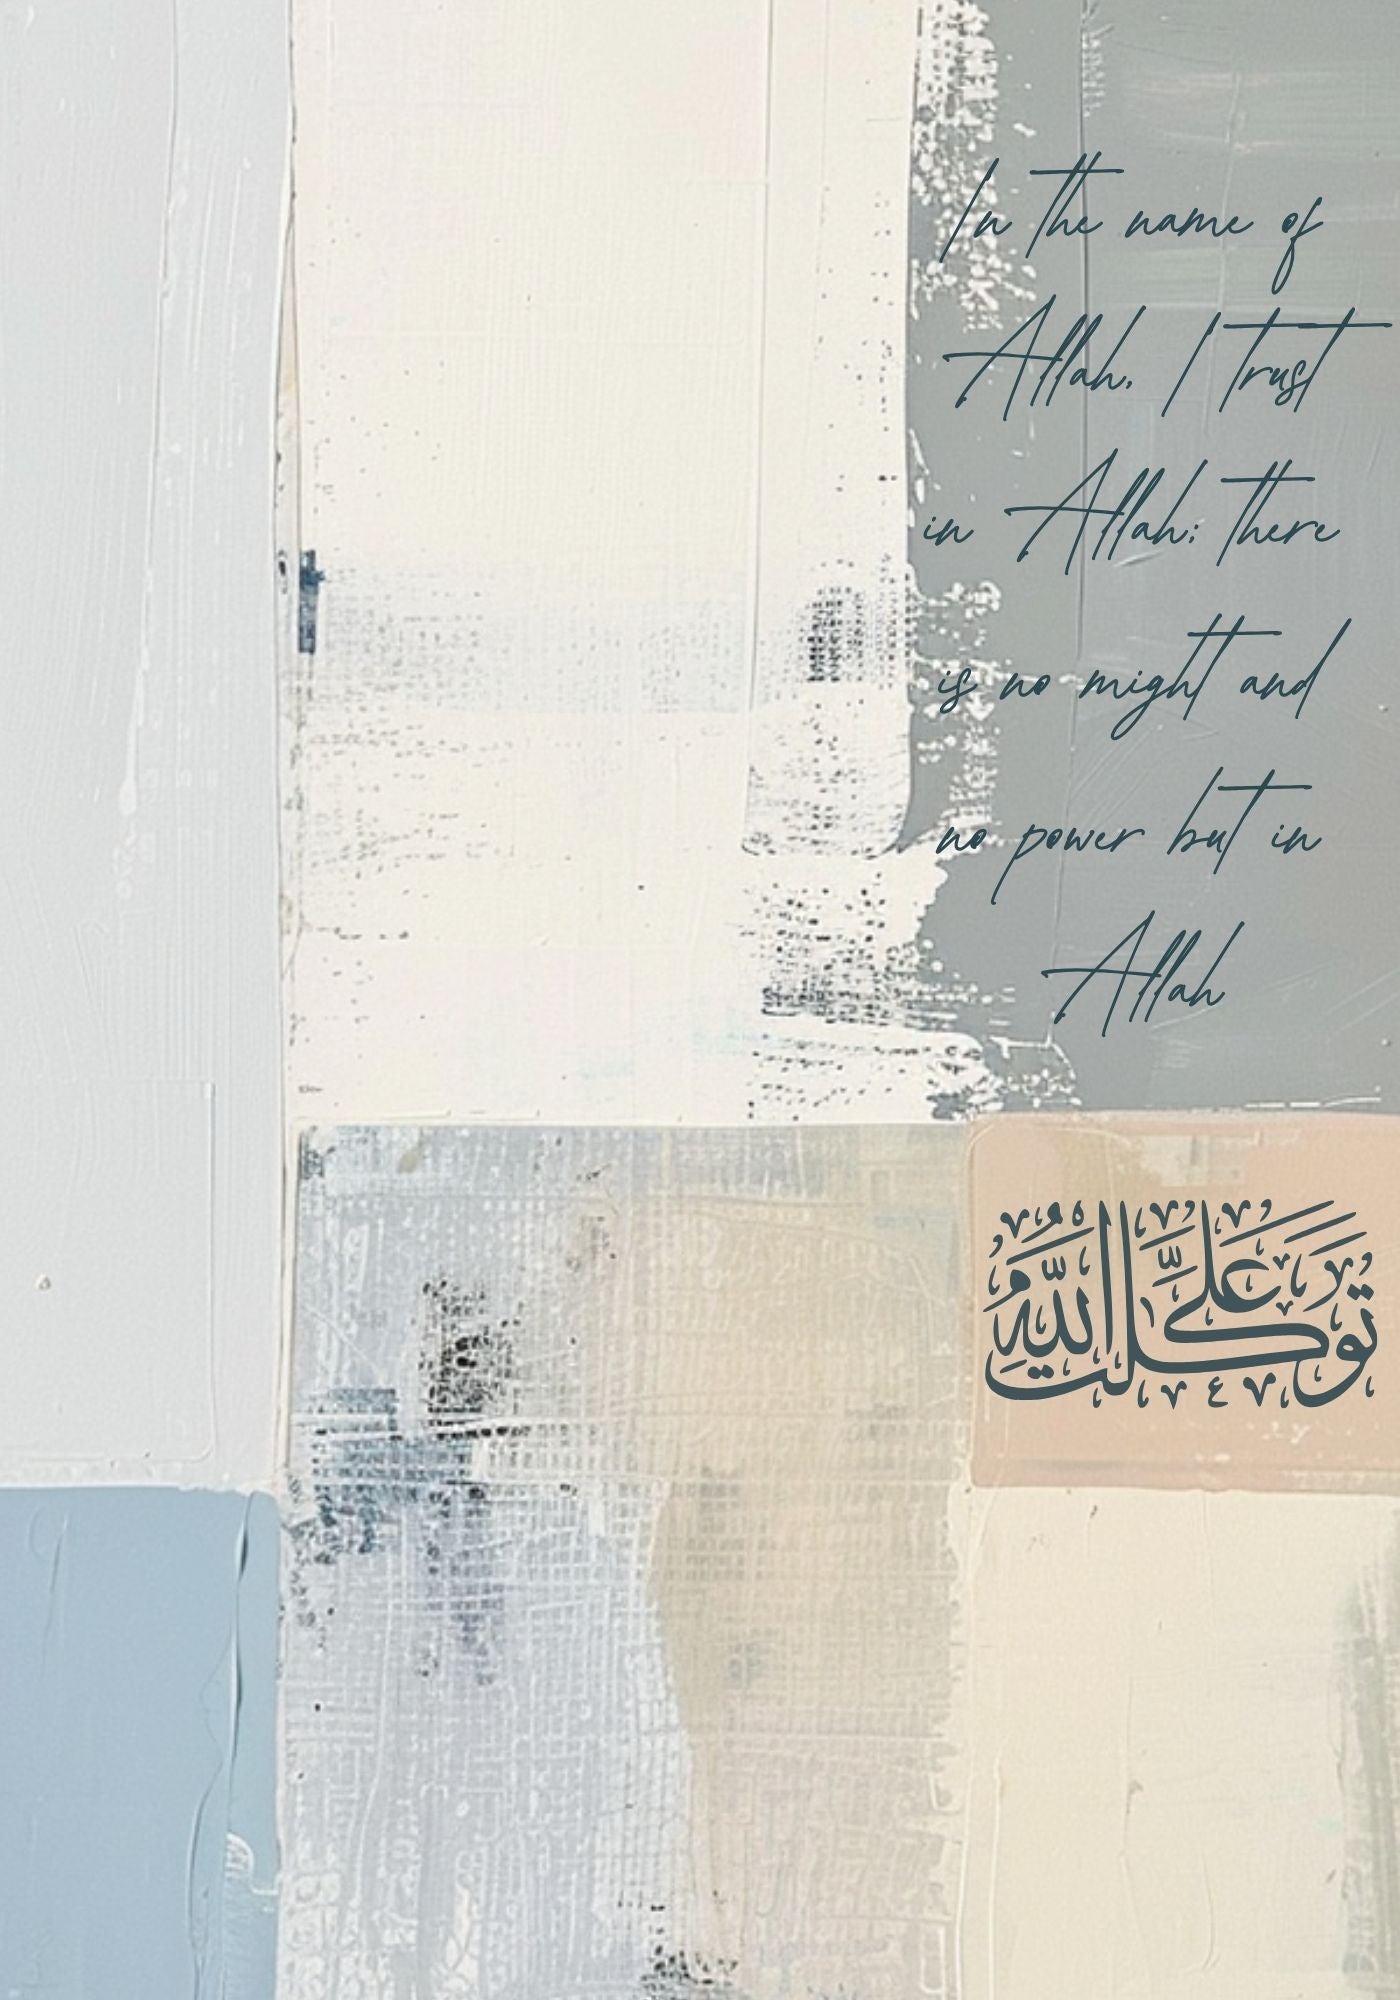 In the name of
Allah, I trust
in Allah; there
is no might and
no power but in
Allah
تَوَكَّلْتُ عَلَى اللَّهِ